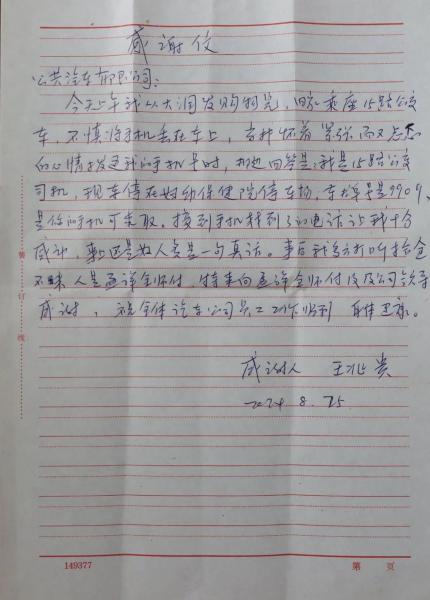 感谢信
公共汽车有限公司：
今天上午我从大润发购物完，回家乘座15路公交
车，不慎将手机丢在车上，当我怀着紧张而又忐忑
的心情拨打我的手机号时，那边回答是：我是15路公交
司机，现车停在妇幼保健院停车场，车号是9909，
是你的手机可来取。接到手机转到了的电话让我十分
感动，事后
不昧人是孟祥全师付，特来向孟祥全师付及公司领导
感谢，祝全体汽车公司员工工作顺利 身体健康。
感谢人 王兆贵
2024.8.25
装订线
149377 第 页